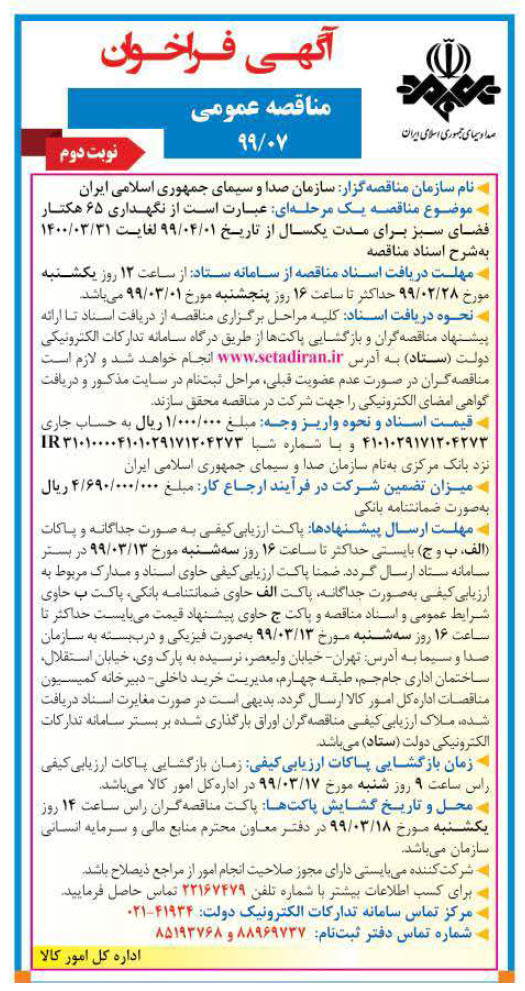 آگهی فراخوان
صدا و سیمای جمهوری اسلامی ایران
مناقصه عمومی
۹۹/۰۷
نوبت دوم
نام سازمان مناقصه‌گزار: سازمان صدا و سیمای جمهوری اسلامی ایران
موضوع مناقصه یک مرحله‌ای: عبارت است از نگهداری ۶۵ هکتار
فضای سبز برای مدت یکسال از تاریخ ۹۹/۰۴/۰۱ لغایت ۱۴۰۰/۰۳/۳۱
به‌شرح اسناد مناقصه
مهلت دریافت اسناد مناقصه از سامانه ستاد: از ساعت ۱۲ روز یکشنبه
مورخ ۹۹/۰۲/۲۸ حداکثر تا ساعت ۱۶ روز پنجشنبه مورخ ۹۹/۰۳/۰۱ می‌باشد.
نحوه دریافت اسناد: کلیه مراحل برگزاری مناقصه از دریافت اسناد تا ارائه
پیشنهاد مناقصه‌گران و بازگشایی پاکت‌ها از طریق درگاه سامانه تدارکات الکترونیکی
دولت (ستاد) به آدرس www.setadiran.ir انجام خواهد شد و لازم است
مناقصه‌گران در صورت عدم عضویت قبلی، مراحل ثبت‌نام در سایت مذکور و دریافت
گواهی امضای الکترونیکی را جهت شرکت در مناقصه محقق سازند.
قیمت اسناد و نحوه واریز وجه: مبلغ ۱/۰۰۰/۰۰۰ ریال به حساب جاری
۴۱۰۱۰۲۹۱۷۱۲۰۴۲۷۳ و با شماره شبا IR ۳۱۰۱۰۰۰۰۴۱۰۱۰۲۹۱۷۱۲۰۴۲۷۳
نزد بانک مرکزی به‌نام سازمان صدا و سیمای جمهوری اسلامی ایران
میزان تضمین شرکت در فرآیند ارجاع کار: مبلغ ۴/۶۹۰/۰۰۰/۰۰۰ ریال
به‌صورت ضمانتنامه بانکی
مهلت ارسال پیشنهادها: پاکت ارزیابی‌کیفی به صورت جداگانه و پاکات
(الف، ب و ج) بایستی حداکثر تا ساعت ۱۶ روز سه‌شنبه مورخ ۹۹/۰۳/۱۳ در بستر
سامانه ستاد ارسال گردد. ضمنا پاکت ارزیابی‌کیفی حاوی اسناد و مدارک مربوط به
ارزیابی‌کیفی به‌صورت جداگانه، پاکت الف حاوی ضمانتنامه بانکی، پاکت ب حاوی
شرایط عمومی و اسناد مناقصه و پاکت ج حاوی پیشنهاد قیمت می‌بایست حداکثر تا
ساعت ۱۶ روز سه‌شنبه مورخ ۹۹/۰۳/۱۳ به‌صورت فیزیکی و دربسته به سازمان
صدا و سیما به آدرس: تهران- خیابان ولیعصر، نرسیده به پارک وی، خیابان استقلال،
ساختمان اداری جام‌جم، طبقه چهارم، مدیریت خرید داخلی- دبیرخانه کمیسیون
مناقصات اداره‌کل امور کالا ارسال گردد. بدیهی است در صورت مغایرت اسناد دریافت
شده، ملاک ارزیابی‌کیفی مناقصه‌گران اوراق بارگذاری شده بر بستر سامانه تدارکات
الکترونیکی دولت (ستاد) می‌باشد.
زمان بازگشایی پاکات ارزیابی‌کیفی: زمان بازگشایی پاکات ارزیابی‌کیفی
راس ساعت ۹ روز شنبه مورخ ۹۹/۰۳/۱۷ در اداره‌کل امور کالا می‌باشد.
محل و تاریخ گشایش پاکت‌ها: پاکت مناقصه‌گران راس ساعت ۱۴ روز
یکشنبه مورخ ۹۹/۰۳/۱۸ در دفتر معاون محترم منابع مالی و سرمایه انسانی
سازمان می‌باشد.
شرکت‌کننده می‌بایستی دارای مجوز صلاحیت انجام امور از مراجع ذیصلاح باشد.
برای کسب اطلاعات بیشتر با شماره تلفن ۲۲۱۶۷۴۷۹ تماس حاصل فرمایید.
مرکز تماس سامانه تدارکات الکترونیک دولت: ۴۱۹۳۴-۰۲۱
شماره تماس دفتر ثبت‌نام: ۸۸۹۶۹۷۳۷ و ۸۵۱۹۳۷۶۸
اداره کل امور کالا